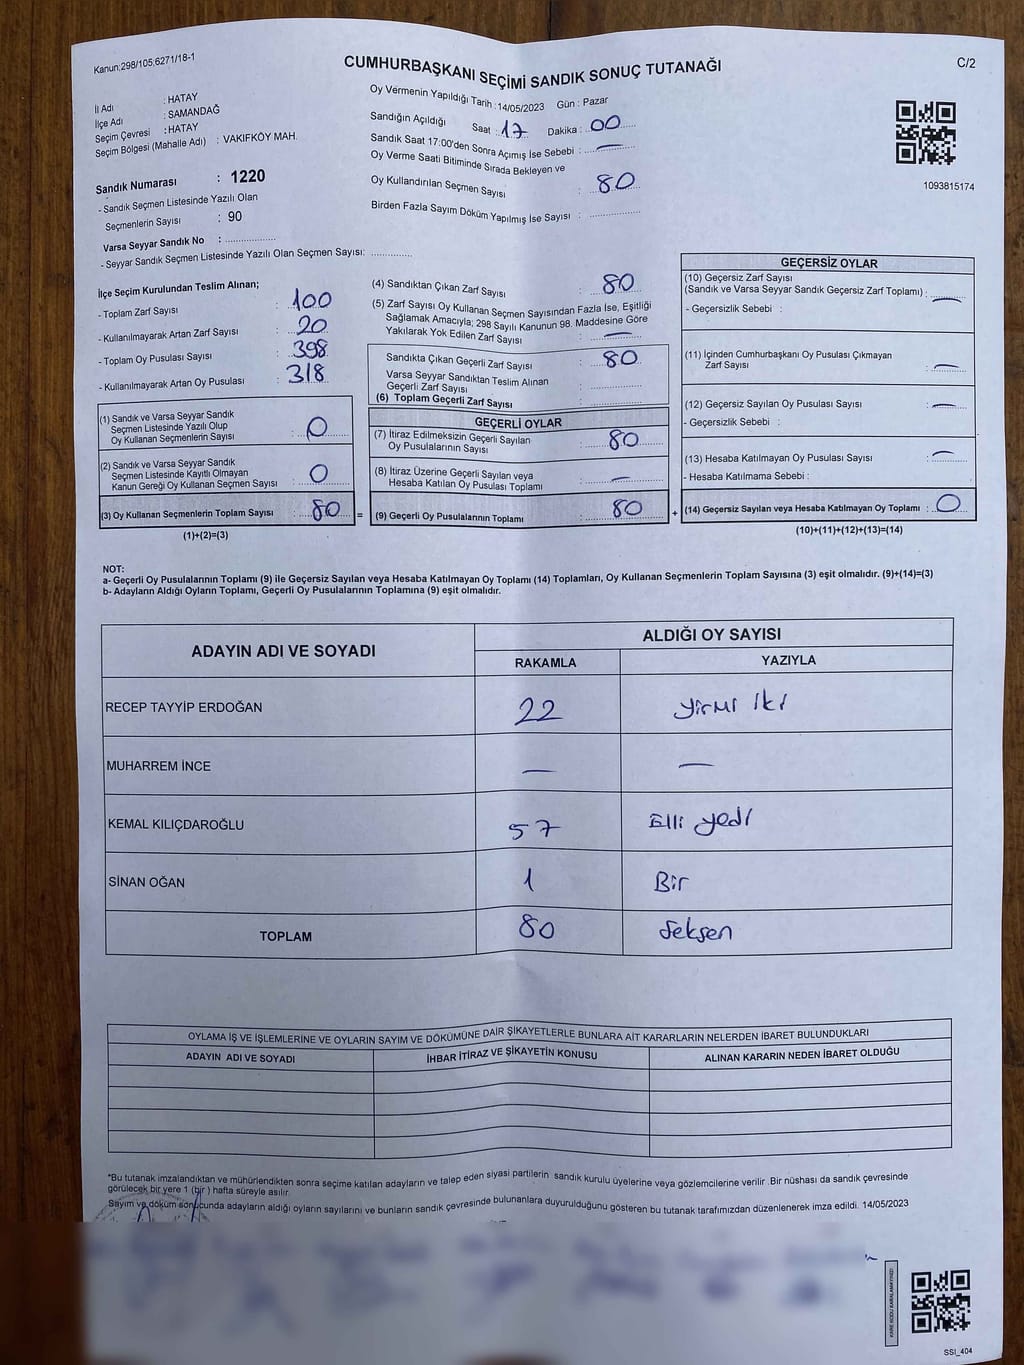 Kanun:298/105,6271/18-1
CUMHURBAŞKANI SEÇİMİ SANDIK SONUÇ TUTANAĞI
C/2
İl Adı : HATAY
İlçe Adı : SAMANDAĞ
Seçim Çevresi : HATAY
Seçim Bölgesi (Mahalle Adı) : VAKIFKÖY MAH.
Sandık Numarası : 1220
- Sandık Seçmen Listesinde Yazılı Olan
Seçmenlerin Sayısı : 90
Varsa Seyyar Sandık No : ................
- Seyyar Sandık Seçmen Listesinde Yazılı Olan Seçmen Sayısı: .............
Oy Vermenin Yapıldığı Tarih :14/05/2023 Gün : Pazar
Sandığın Açıldığı Saat : 17 Dakika : 00
Sandık Saat 17:00'den Sonra Açımış İse Sebebi : —
Oy Verme Saati Bitiminde Sırada Bekleyen ve
Oy Kullandırılan Seçmen Sayısı : 80
Birden Fazla Sayım Döküm Yapılmış İse Sayısı : ................
1093815174
İlçe Seçim Kurulundan Teslim Alınan;
- Toplam Zarf Sayısı : 100
- Kullanılmayarak Artan Zarf Sayısı : 20
- Toplam Oy Pusulası Sayısı : 398
- Kullanılmayarak Artan Oy Pusulası : 318
(1) Sandık ve Varsa Seyyar Sandık
Seçmen Listesinde Yazılı Olup
Oy Kullanan Seçmenlerin Sayısı : 0
(2) Sandık ve Varsa Seyyar Sandık
Seçmen Listesinde Kayıtlı Olmayan
Kanun Gereği Oy Kullanan Seçmen Sayısı : 0
(3) Oy Kullanan Seçmenlerin Toplam Sayısı : 80
(1)+(2)=(3)
=
(4) Sandıktan Çıkan Zarf Sayısı : 80
(5) Zarf Sayısı Oy Kullanan Seçmen Sayısından Fazla İse, Eşitliği
Sağlamak Amacıyla; 298 Sayılı Kanunun 98. Maddesine Göre
Yakılarak Yok Edilen Zarf Sayısı : —
Sandıkta Çıkan Geçerli Zarf Sayısı : 80
Varsa Seyyar Sandıktan Teslim Alınan
Geçerli Zarf Sayısı : ................
(6) Toplam Geçerli Zarf Sayısı : ................
GEÇERLİ OYLAR
(7) İtiraz Edilmeksizin Geçerli Sayılan
Oy Pusulalarının Sayısı : 80
(8) İtiraz Üzerine Geçerli Sayılan veya
Hesaba Katılan Oy Pusulası Toplamı : —
(9) Geçerli Oy Pusulalarının Toplamı : 80
+
GEÇERSİZ OYLAR
(10) Geçersiz Zarf Sayısı
(Sandık ve Varsa Seyyar Sandık Geçersiz Zarf Toplamı) : —
- Geçersizlik Sebebi :
(11) İçinden Cumhurbaşkanı Oy Pusulası Çıkmayan
Zarf Sayısı : —
(12) Geçersiz Sayılan Oy Pusulası Sayısı : —
- Geçersizlik Sebebi :
(13) Hesaba Katılmayan Oy Pusulası Sayısı : —
- Hesaba Katılmama Sebebi :
(14) Geçersiz Sayılan veya Hesaba Katılmayan Oy Toplamı : 0
(10)+(11)+(12)+(13)=(14)
NOT:
a- Geçerli Oy Pusulalarının Toplamı (9) ile Geçersiz Sayılan veya Hesaba Katılmayan Oy Toplamı (14) Toplamları, Oy Kullanan Seçmenlerin Toplam Sayısına (3) eşit olmalıdır. (9)+(14)=(3)
b- Adayların Aldığı Oyların Toplamı, Geçerli Oy Pusulalarının Toplamına (9) eşit olmalıdır.
ADAYIN ADI VE SOYADI ALDIĞI OY SAYISI
RAKAMLA YAZIYLA
RECEP TAYYİP ERDOĞAN 22 yirmi iki
MUHARREM İNCE — —
KEMAL KILIÇDAROĞLU 57 Elli yedi
SİNAN OĞAN 1 Bir
TOPLAM 80 Seksen
OYLAMA İŞ VE İŞLEMLERİNE VE OYLARIN SAYIM VE DÖKÜMÜNE DAİR ŞİKAYETLERLE BUNLARA AİT KARARLARIN NELERDEN İBARET BULUNDUKLARI
ADAYIN ADI VE SOYADI İHBAR İTİRAZ VE ŞİKAYETİN KONUSU ALINAN KARARIN NEDEN İBARET OLDUĞU
*Bu tutanak imzalandıktan ve mühürlendikten sonra seçime katılan adayların ve talep eden siyasi partilerin sandık kurulu üyelerine veya gözlemcilerine verilir .Bir nüshası da sandık çevresinde
görülecek bir yere 1 (bir ) hafta süreyle asılır.
Sayım ve döküm sonucunda adayların aldığı oyların sayılarını ve bunların sandık çevresinde bulunanlara duyurulduğunu gösteren bu tutanak tarafımızdan düzenlenerek imza edildi. 14/05/2023
KARE KODU KARALAMAYINIZ!
SSI_404